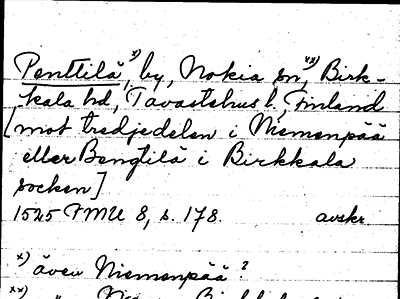 Penttilä, x) by, Nokia sn, xx) Birk-
kala hd, Tavastehus l, Finland
[mot tredjedelen i Niemenpää
eller Bengtilä i Birkkala
socken]
1525 FMU 8, s. 178. avskr.
x) även Niemenpää?
xx)